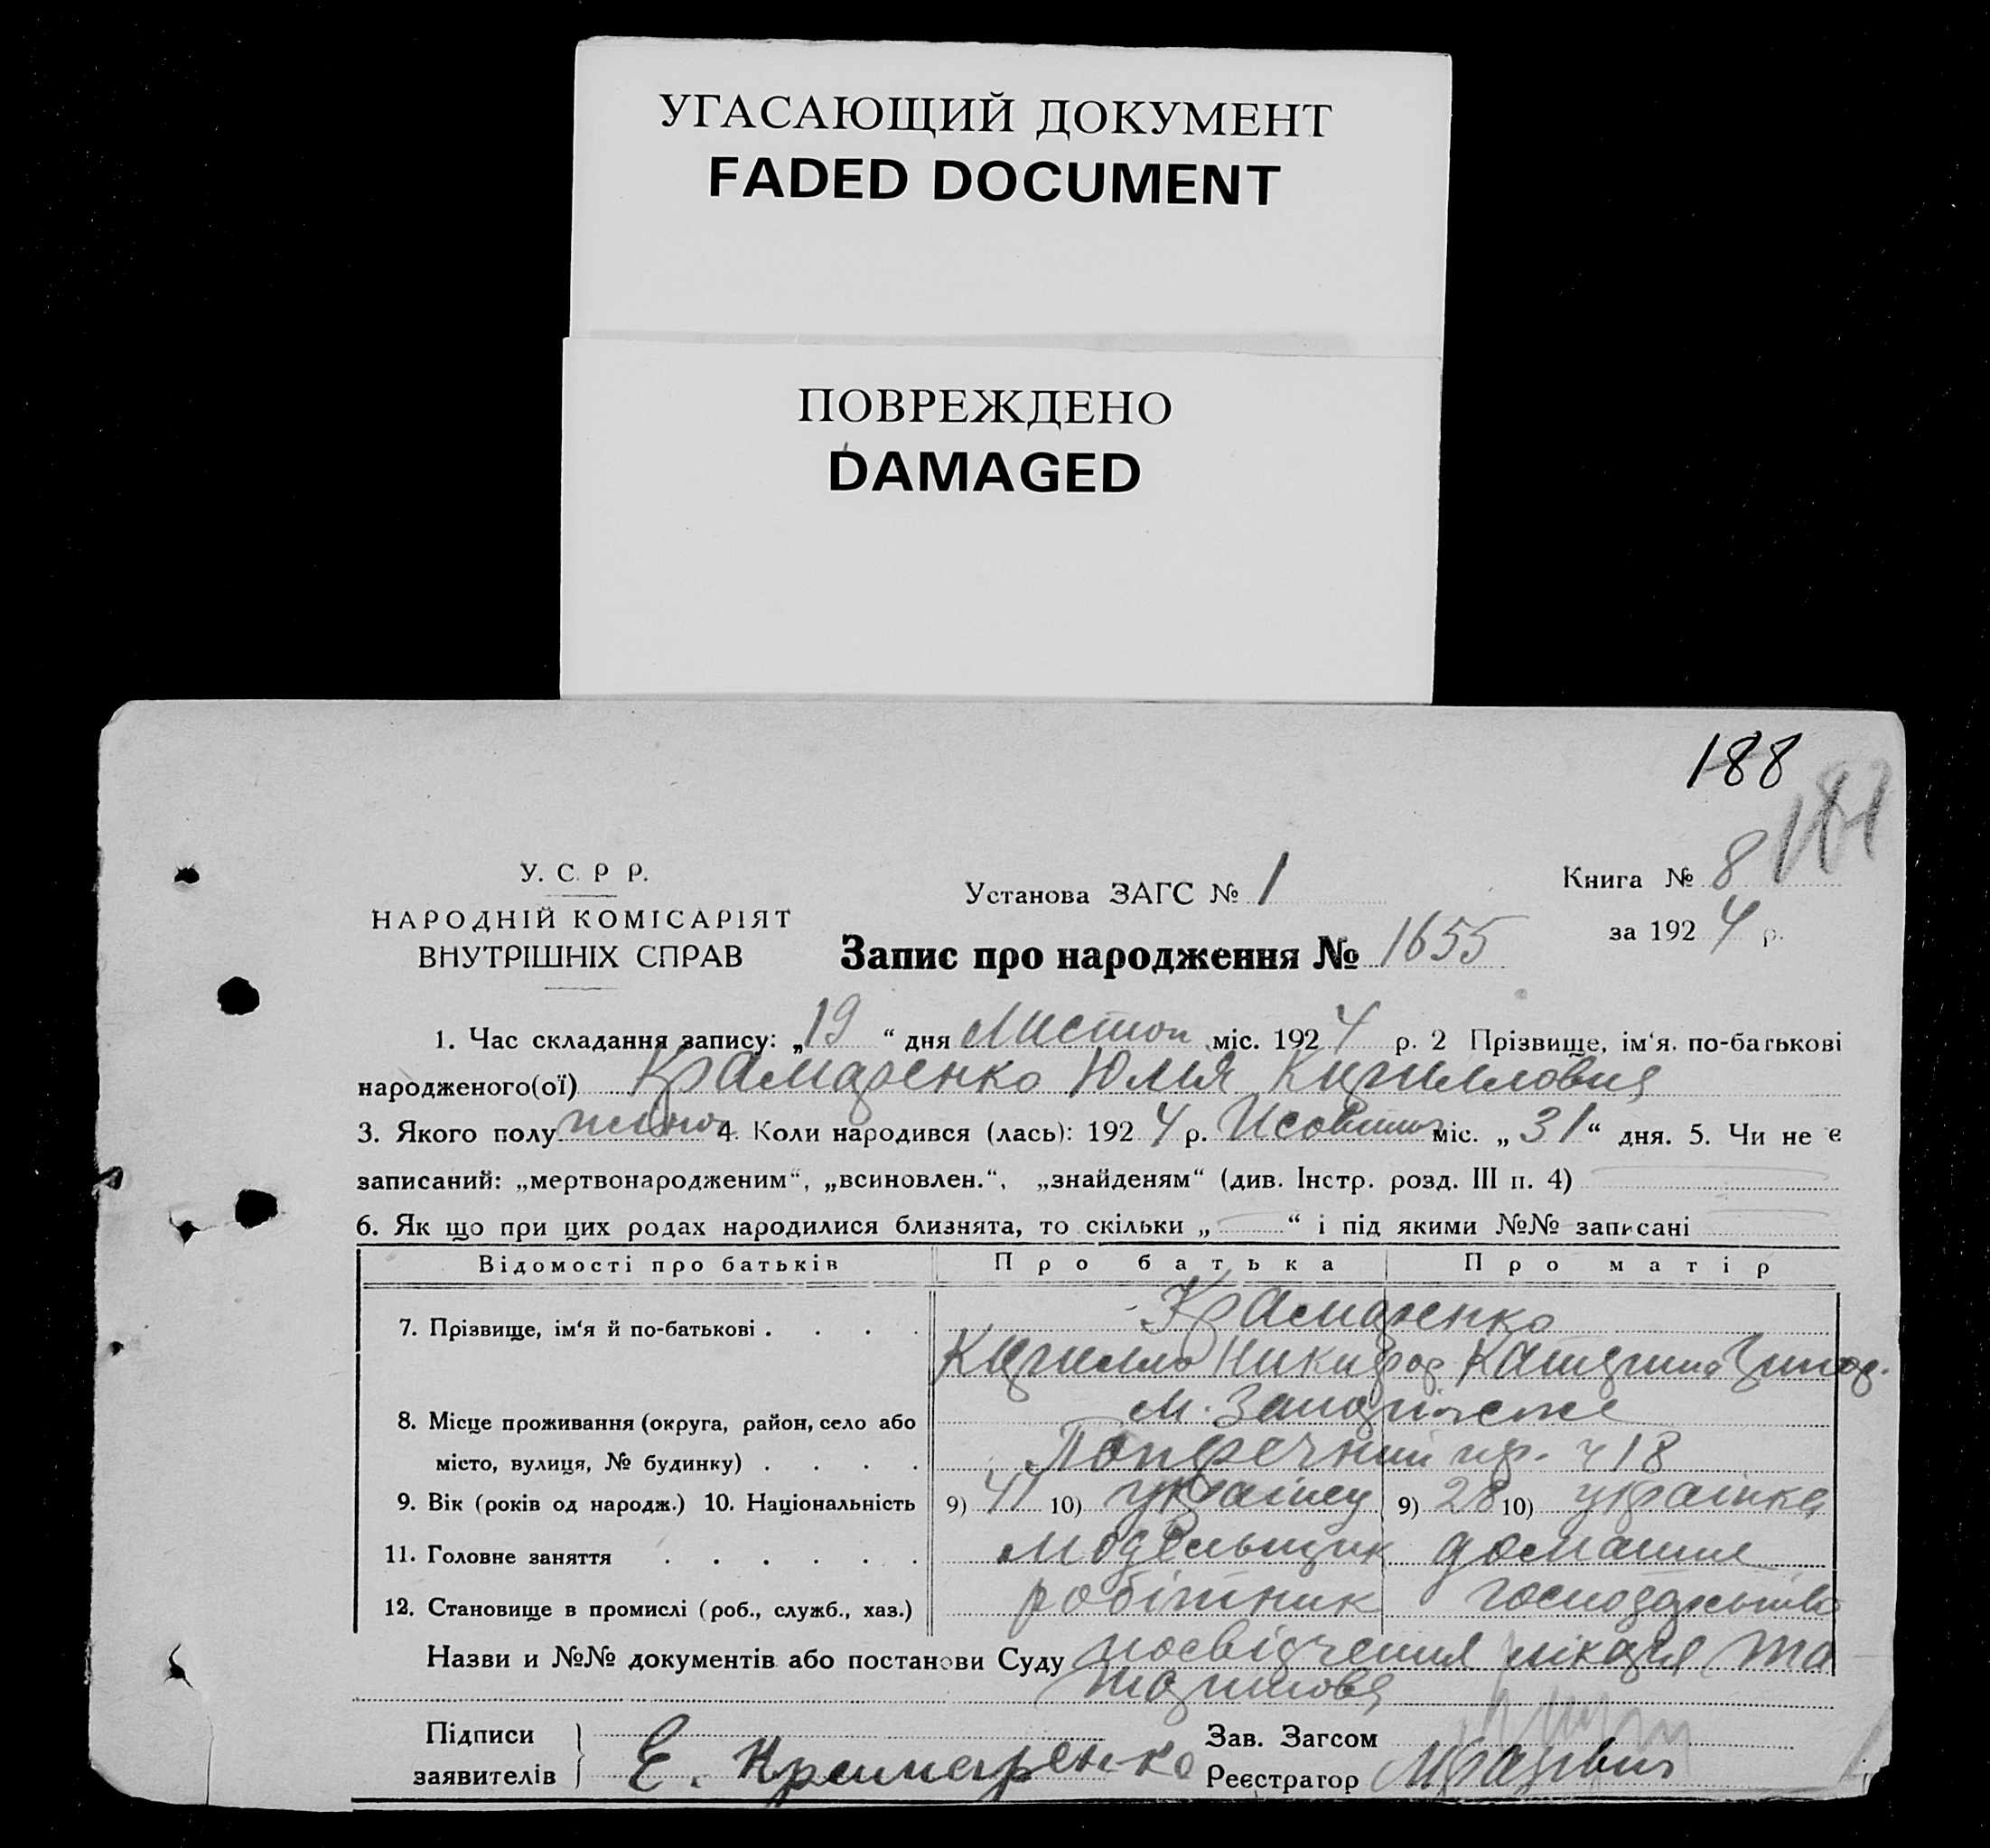 УГАСАЮЩИЙ ДОКУМЕНТ
FADED DOCUMENT
ПОВРЕЖДЕНО
DAMAGED
188
У. С. Р Р.
НАРОДНІЙ КОМІСАРІЯТ
ВНУТРІШНІХ СПРАВ
Установа ЗАГС № 1
Книга № 8
за 1924 р.
Запис про народження № 1655
1. Час складання запису: „19“ дня Листоп міс. 1924 р. 2 Прізвище, ім‘я. по-батькові
народженого(ої) Крамаренко Юлия Кирилловна
3. Якого полу жіноч 4. Коли народився (лась): 1924 р. міс. „31“ дня. 5. Чи не є
записаний: „мертвонародженим“, „всиновлен.“, „знайденям“ (див. Інстр. розд. III п. 4)
6. Як що при цих родах народилися близнята, то скільки „ “ і під якими №№ записані
Відомості про батьків Про батька Про матір
7. Прізвище, ім‘я й по-батькові . . . . Крамаренко
Кирилло Никифор Катерина
8. Місце проживання (округа, район, село або м. Запоріжже
місто, вулиця, № будинку) . . . . Поперечний пр. ч 18
9. Вік (років од народж.) 10. Національність 9) 41 10) українец 9) 28 10) українка
11. Головне заняття . . . . . . модельщик домашне
12. Становище в промислі (роб., служб., хаз.) робітник господарьство
Назви и №№ документів або постанови Суду посвідчення лікаря та
Підписи
заявителів Е. Крамаренко
Зав. Загсом
Реєстратор